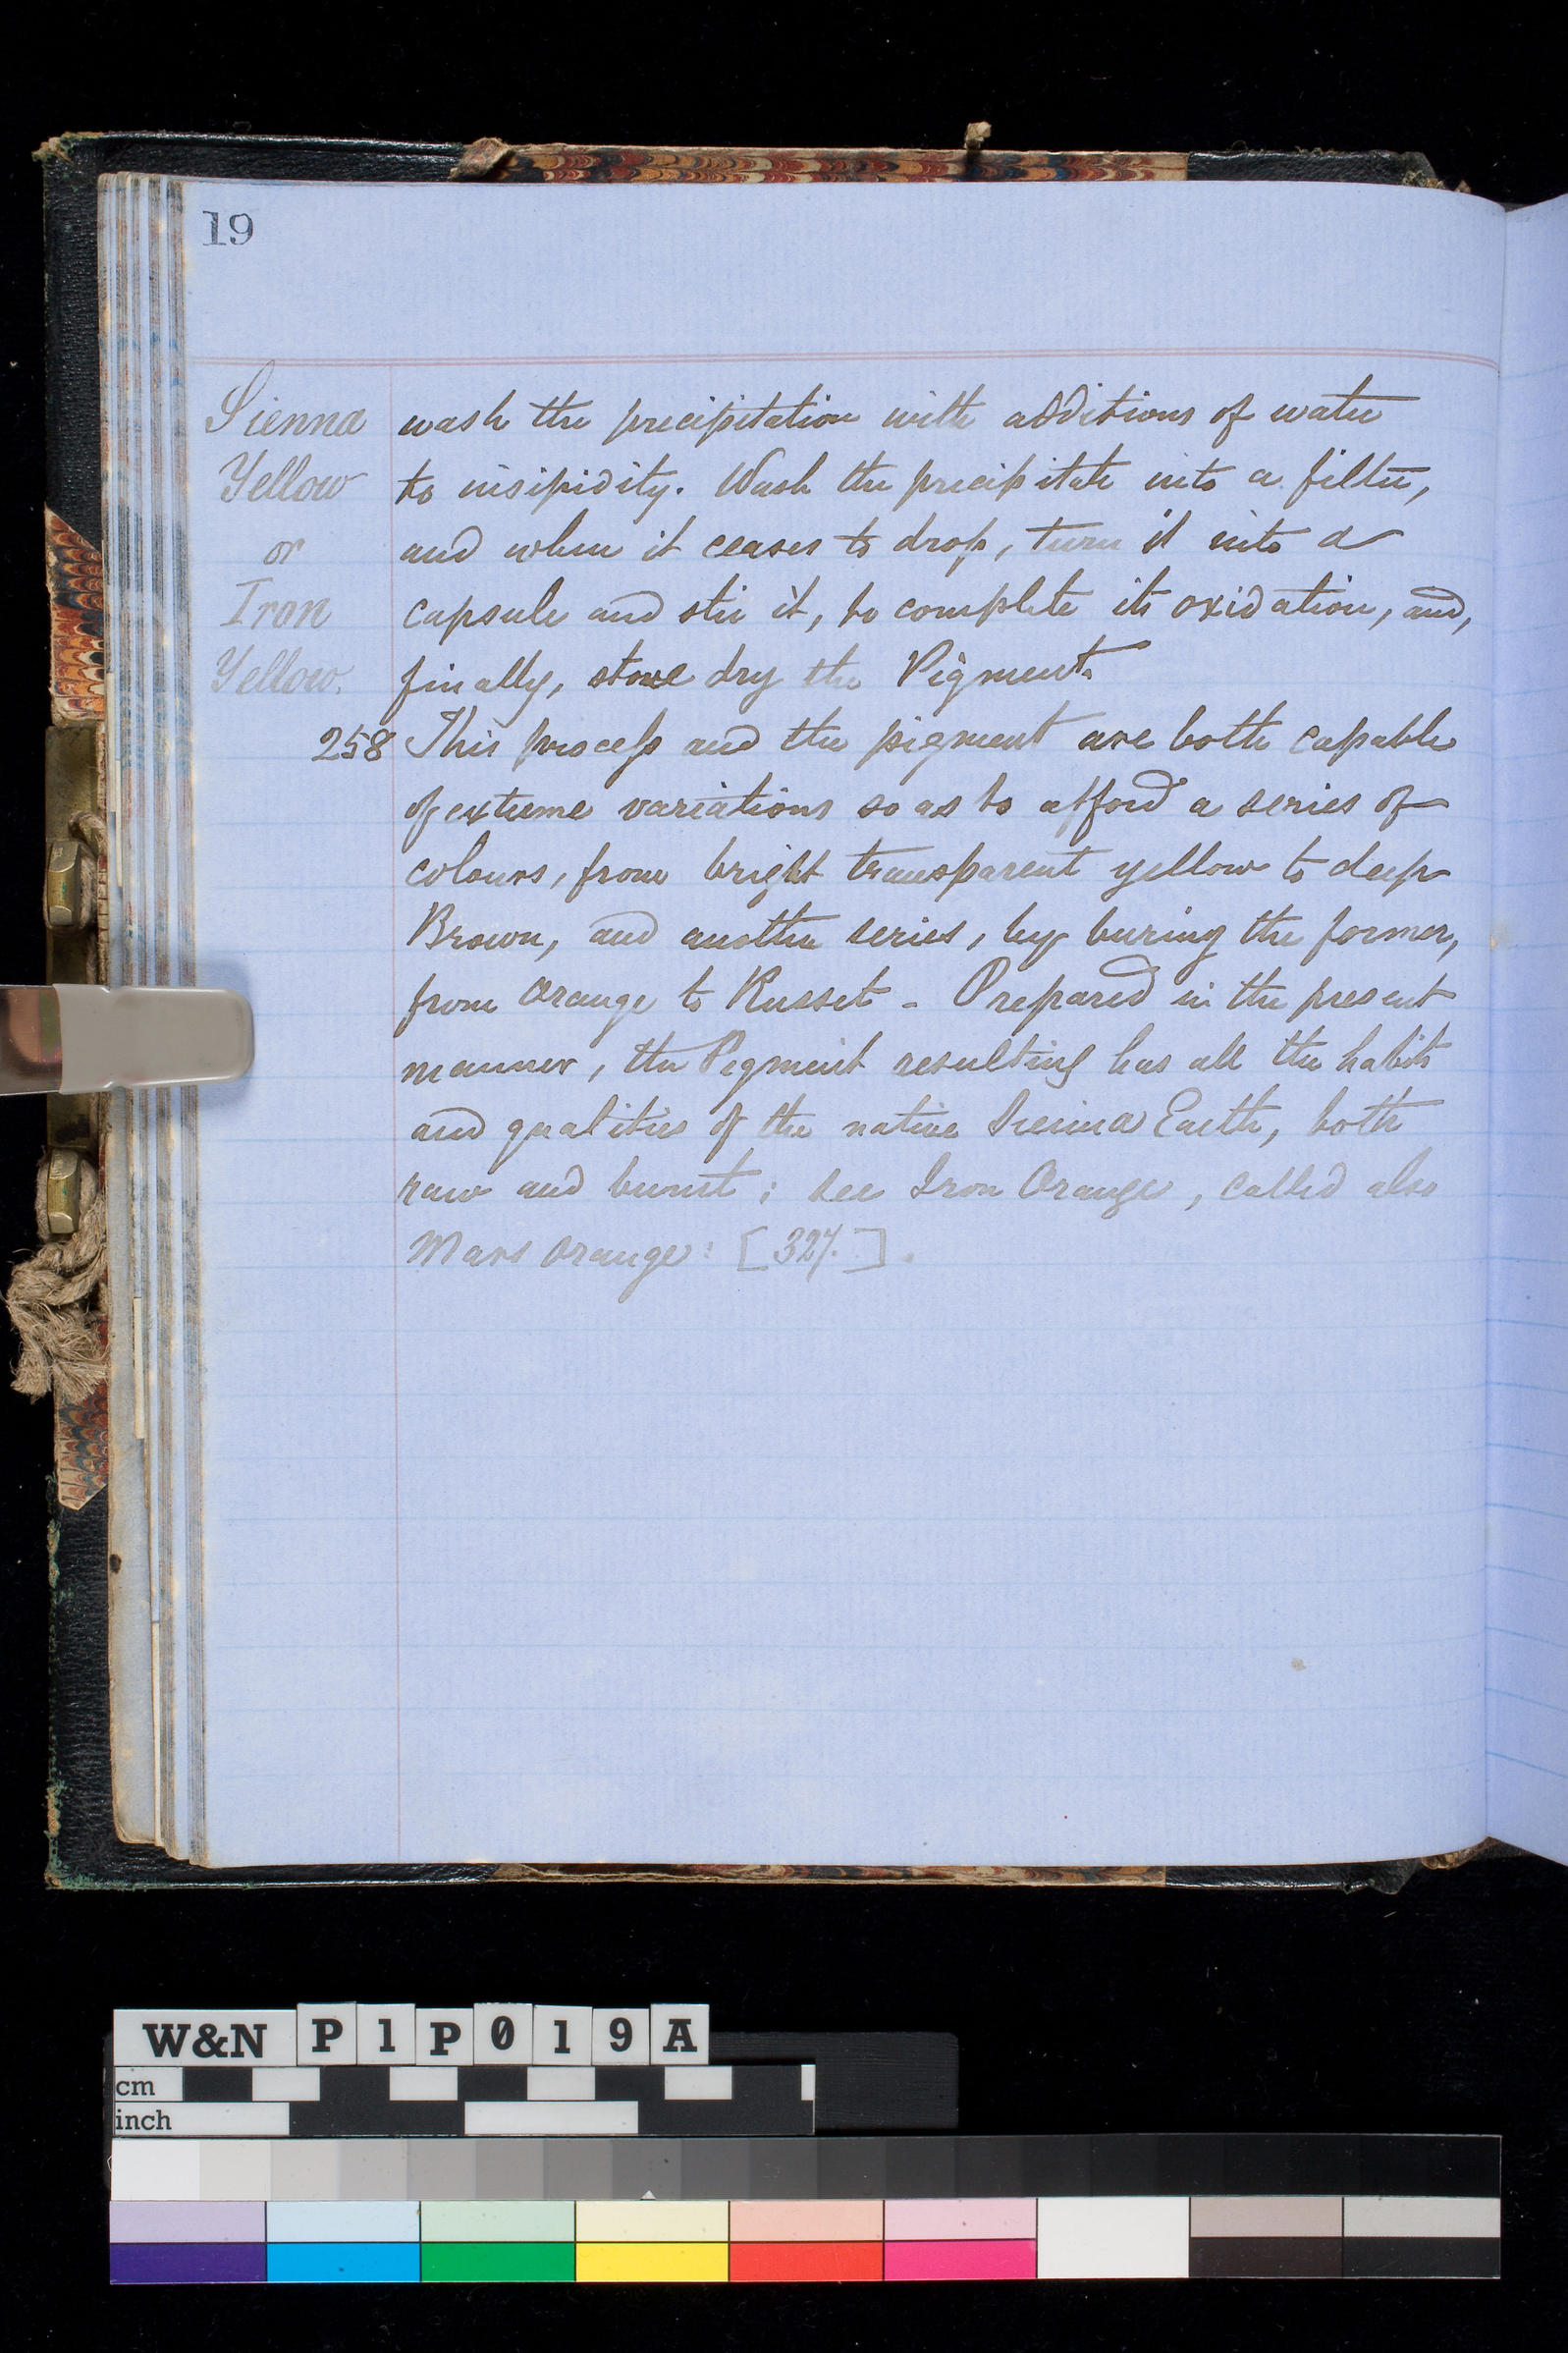 19
Sienna
Yellow
or
Iron
Yellow.
wash the precipitation with additions of water
to insipidity. Wash the precipitate into a filter,
and when it ceases to drop, turn it into a
capsule and stir it, to complete its oxidation, and,
finally, stove dry the Pigment.
258 This process and the pigment are both capable
of extreme variations so as to afford a series of
colours, from bright transparent yellow to deep
Brown, and another series, by buring the former,
from Orange to Russet - Prepared in the present
manner, the Pigment resulting has all the habits
and qualities of the native Sienna Earth, both
raw and burnt; see Iron Orange, called also
Mars Orange: [327.].
W&N P1P019A
cm
inch